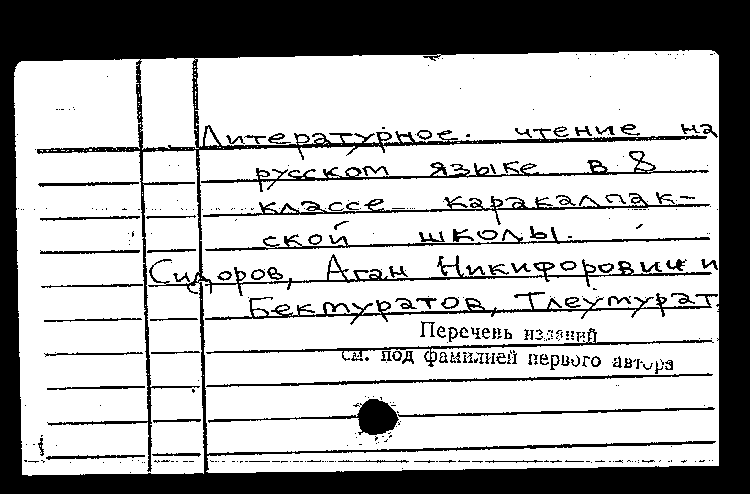 Литературное. чтение на
русском языке в 8
классе каракалпак-
ской школы.
Сидоров, Аган Никифорович и
Бектуратов, Тлеумурат.
Перечень изданий
см. под фамилией первого автора